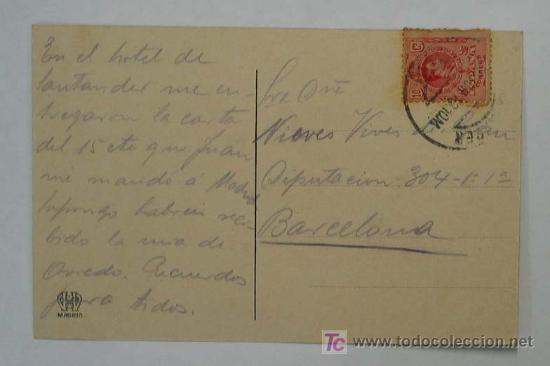 En el hotel de
Santander me en-
tregaron la carta
del 15 cte que Juan
me mandó á Madrid
supongo habreis reci-
bido la mia de
Oviedo. Recuerdos
para todos.
MADRID
Sra Dña
Nieves Vives de
Diputacion 304-1º 1ª
Barcelona
10
Tc todocoleccion
www.todocoleccion.net